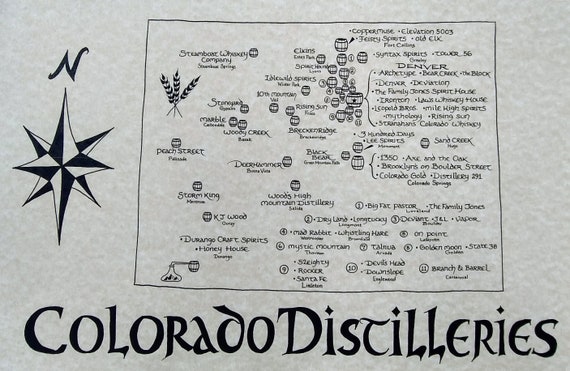 N
Coppermuse • Elevation 5003
• Feisty Spirits • Old Elk
Fort Collins
Steamboat Whiskey
Company
Steamboat Springs
Elkins
Estes Park
• Syntax Spirits • Tower 56
Greeley
Spirit Hound
Lyons
Denver
• Archetype • Bear Creek • The Block
• Denver • Deviation
• The Family Jones Spirit House
• Ironton • Laws Whiskey House
• Leopold Bros. • Mile High Spirits
• Mythology • Rising Sun
• Stranahans Colorado Whiskey
Idlewild Spirits
Winter Park
10th Mountain
Vail
Stoneyard
Gypsum
Rising Sun
Frisco
Marble
Carbondale
Woody Creek
Basalt
Breckenridge
Breckenridge
• 3 Hundred Days
• Lee Spirits
Monument
Sand Creek
Hugo
Peach Street
Palisade
Black
Bear
Green Mountain Falls
Deerhammer
Buena Vista
• 1350 • Axe and the Oak
• Brooklyn's on Boulder Street
• Colorado Gold • Distillery 291
Colorado Springs
Storm King
Montrose
Wood's High
Mountain Distillery
Salida
① • Big Fat Pastor • The Family Jones
Loveland
KJ Wood
Ouray
② • Dry Land • Longtucky
Longmont
③ • Deviant • J&L • Vapor
Boulder
④ • Mad Rabbit • Whistling Hare
Westminster
⑤ On Point
Lafayette
• Durango Craft Spirits
• Honey House
Durango
⑥ Mystic Mountain
Thornton
⑦ Talnua
Arvada
⑧ • Golden Moon • State 38
Golden
⑨ • 52eighty
• Rocker
• Santa Fe
Littleton
⑩ • Devils Head
• Downslope
Englewood
⑪ Branch & Barrel
Centennial
Colorado Distilleries